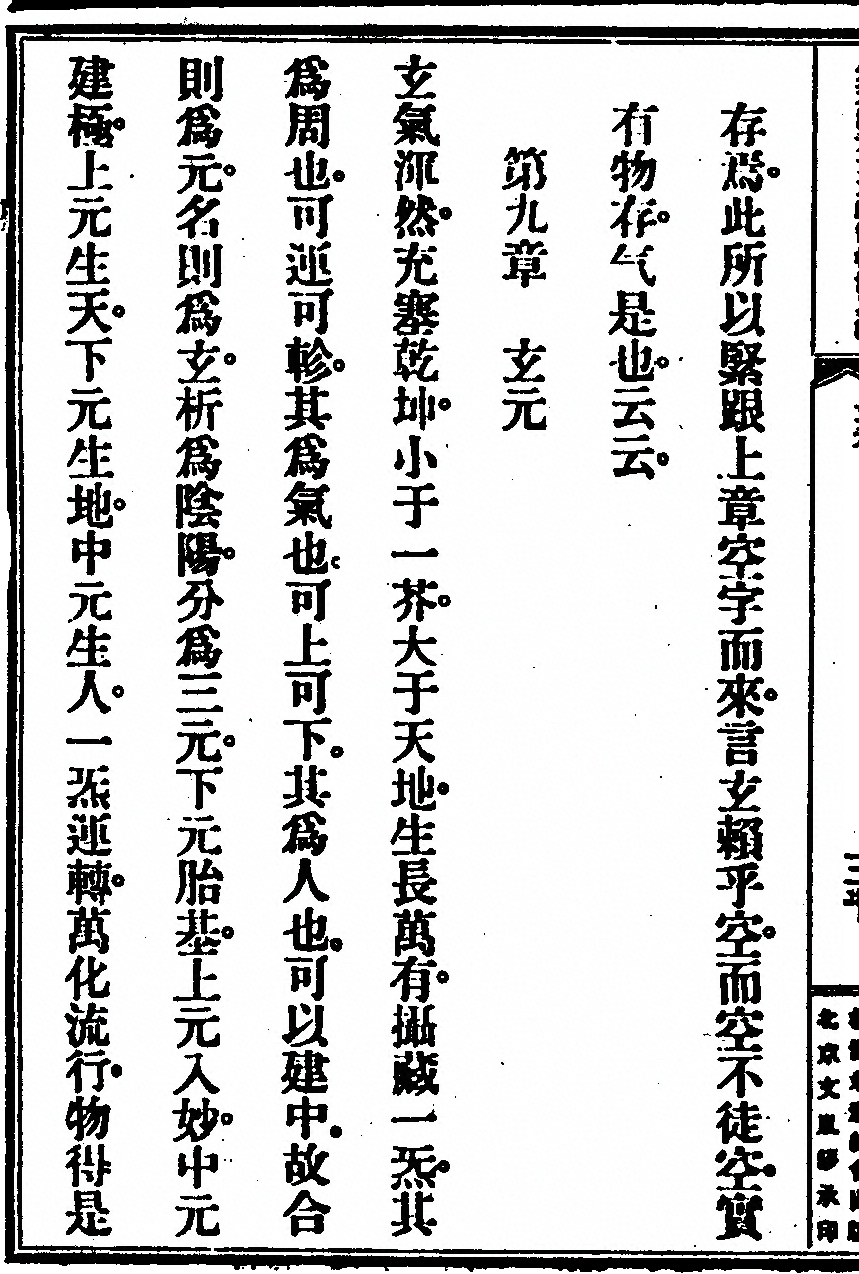 存焉。此所以緊跟上章空字而來。言玄賴乎空。而空不徒空。實
有物存。气是也。云云。
第九章　玄元
玄氣渾然。充塞乾坤。小于一芥。大于天地。生長萬有。攝藏一炁。其
爲周也。可運可軫。其爲氣也。可上可下。其爲人也。可以建中。故合
則爲元。名則爲玄。析爲陰陽。分爲三元。下元胎基。上元入妙。中元
建極。上元生天。下元生地。中元生人。一炁運轉。萬化流行。物得是
北京文嵐簃承印